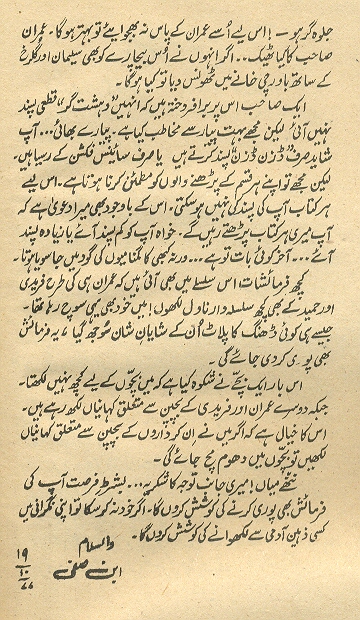 جلوہ گر ہو۔! اس لیے اُسے عمران کے پاس نہ بھجوایئے تو بہتر ہوگا۔ عمران
صاحب کا کیا ٹھیک۔۔۔ اگر انہوں نے اُس بیچارے کو بھی سلیمان اور گلرخ
کے ساتھ باورچی خانے میں ٹھونس دیا تو کیا ہوگا۔
ایک صاحب اس پر برافروختہ ہیں کہ انہیں "دہشت گر" قطعی پسند
نہیں آئی لیکن مجھے بہت پیار سے مخاطب کیا ہے۔ پیارے بھائی۔۔۔ آپ
شاید صرف "ڈزن ڈزن" پسند کرتے ہیں یا صرف سائنس فکشن کے رسیا ہیں۔
لیکن مجھے تو اپنے ہر قسم کے پڑھنے والوں کو مطمئن کرنا ہوتا ہے۔ اس لیے
ہر کتاب آپ کی پسند کی نہیں ہوسکتی۔ اس کے باوجود بھی میرا دعویٰ ہے کہ
آپ میری ہر کتاب پڑھتے رہیں گے۔ خواہ آپ کو کم پسند آئے یا زیادہ پسند
آئے۔۔۔ آخر کوئی بات تو ہے۔۔۔ ورنہ کبھی کا گمنامیوں کی گود میں جا سویا ہوتا۔
کچھ فرمائشات اس سلسلے میں بھی آئی ہیں کہ عمران ہی کی طرح فریدی
اور حمید کے بھی کچھ سلسلہ دار ناول لکھوں! میں خود بھی یہی سوچ رہا تھا۔
جیسے ہی کوئی ڈھنگ کا پلاٹ اُن کے شایان شان سُوجھ گیا۔ یہ فرمائش
بھی پوری کر دی جائے گی۔
اس بار ایک بچے نے شکوہ کیا ہے کہ میں بچّوں کے لیے کچھ نہیں لکھتا۔
جبکہ دوسرے عمران اور فریدی کے بچپن سے متعلق کہانیاں لکھ رہے ہیں۔
اس کا خیال ہے کہ اگر میں نے ان کرداروں کے بچپن سے متعلق کہانیاں
لکھیں تو بچّوں میں دھوم مچ جائے گی۔
ننھے میاں! میری جانب توجہ کا شکریہ۔۔۔ بشرطِ فرصت آپ کی
فرمائش بھی پوری کرنے کی کوشش کروں گا۔ اگر خود نہ کر سکا تو اپنی نگرانی میں
کسی ذہین آدمی سے لکھوانے کی کوشش کروں گا۔
والسلام
ابن صفی
۱۹
۱۰
۷۷